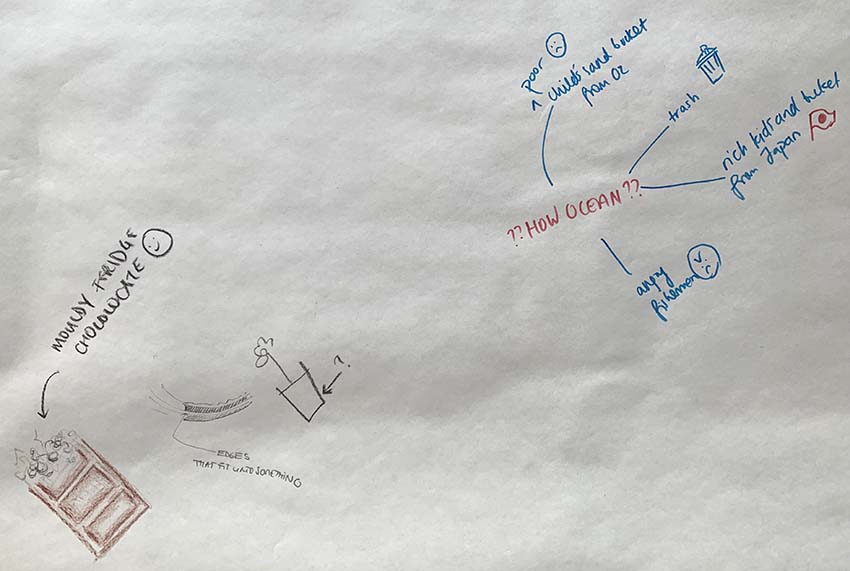 poor
^ child's sand bucket
from OZ
trash
rich kid sand bucket
from Japan
??HOW OCEAN??
angry
fishermen
MOULDY FRIDGE
CHOCOLOCATE
?
EDGES
THAT FIT UNTO SOMETHING